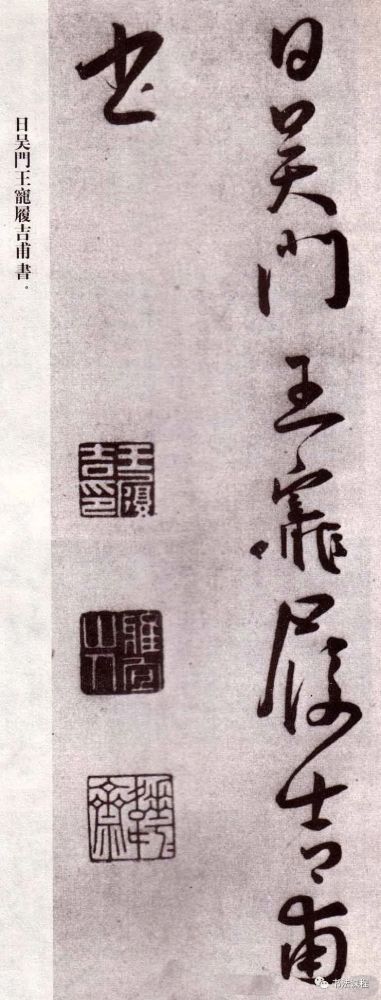 日吴門王寵履吉甫
书
王履吉印
雅宜山人
日吴門王寵履吉甫書。
书法汉程